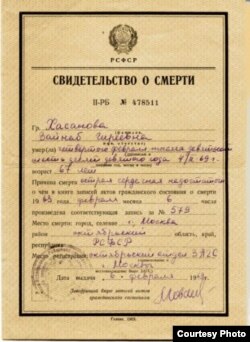 РСФСР
СВИДЕТЕЛЬСТВО О СМЕРТИ
II-РБ № 478511
Гр. Хасанова
Зайнаб Гиреевна
умер(ла) четвертого февраля тысяча девятьсот
шесть девятого года 4/II 69 г.
возраст 67 лет
Причина смерти острая сердечная недостаточн
о чем в книге записей актов гражданского состояния о смерти
1969 февраля месяца 6
произведена соответствующая запись за № 579
Место смерти: город, селение г. Москва
район область, край,
республика РСФСР
Место регистрации октябрьский ЗАГС
г. Москвы
Дата выдачи 6 февраля г.
Заведующий бюро записей актов
гражданского состояния
Гознак.
Courtesy Photo